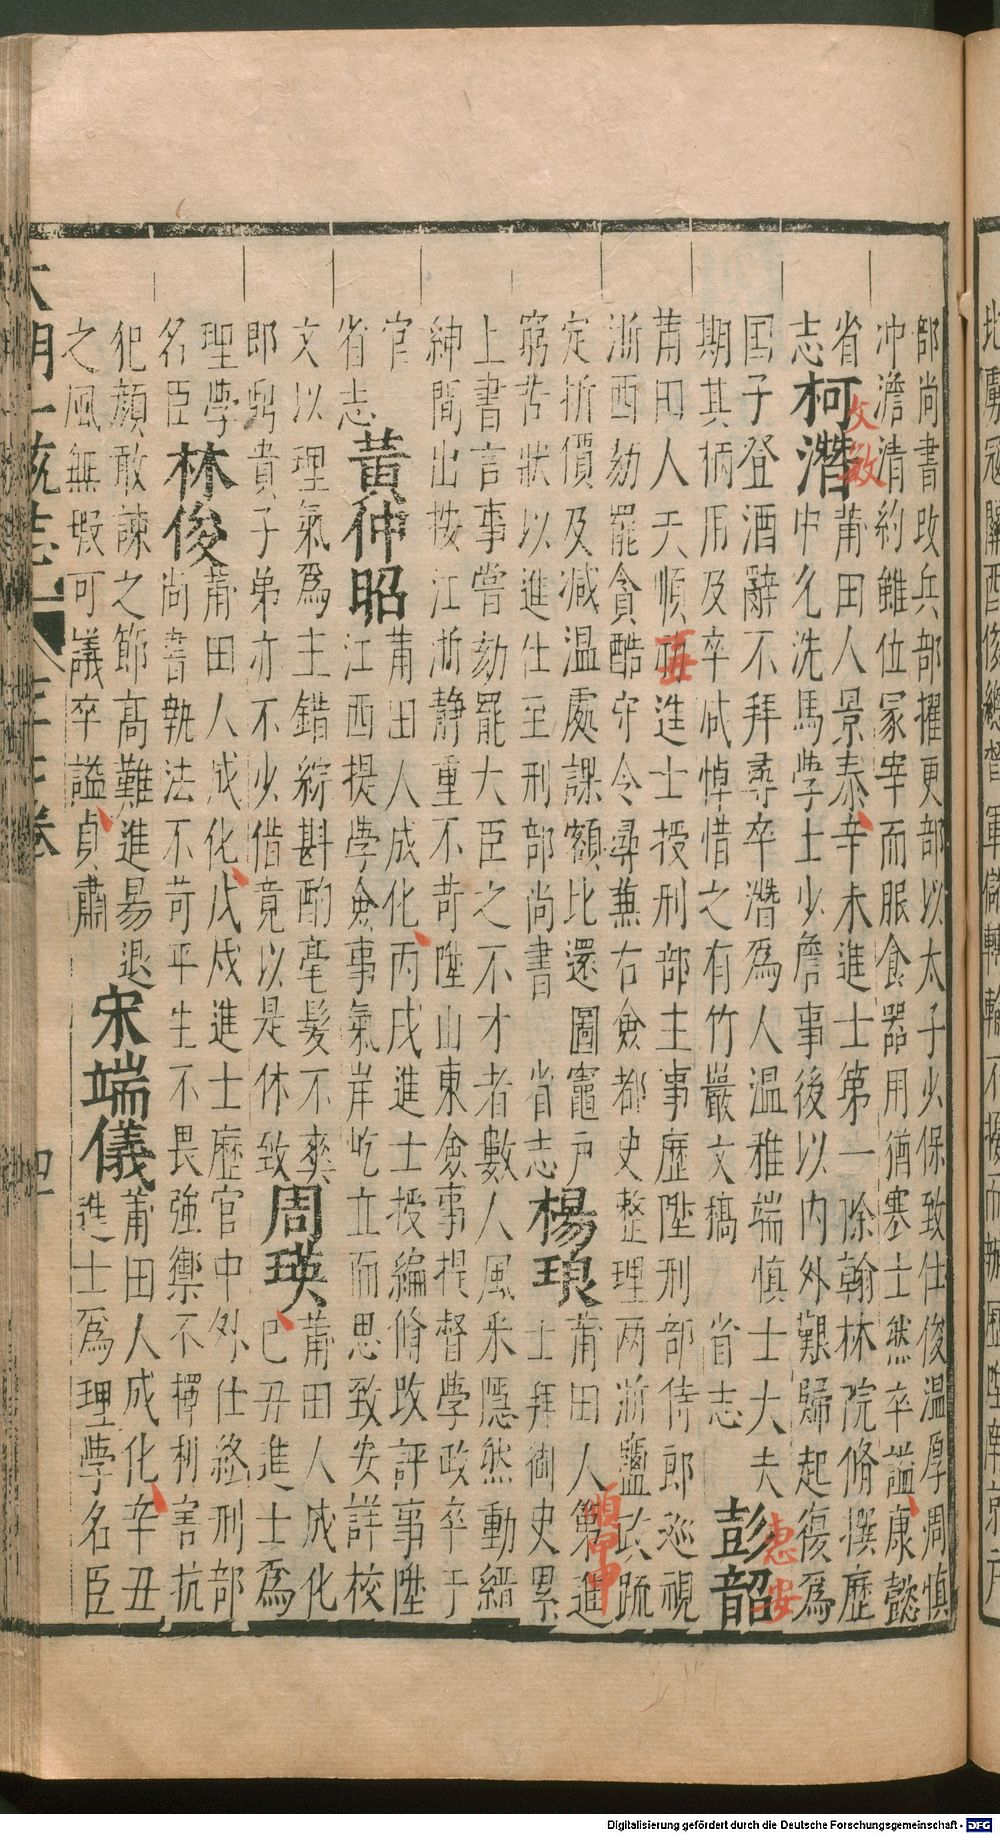 部尚書改兵部擢更部以太子少保致仕俊温厚周慎
冲澹清約雖位冢宰而服食器用猶寒士然卒謚康懿
省志
柯潛
文敏
莆田人景泰辛未進士第一除翰林院脩撰歷
中允洗馬學士少詹事後以内外艱歸起復爲
国子登酒辭不拜尋卒潛爲人温雅端慎士大夫
期其柄用及卒咸悼惜之有竹巖文稿 省志
彭韶
惠安
莆田人天順丑進士授刑部主事歷陞刑部侍郎巡視
浙西劾罷貪酷守令尋兼右僉都史整理两浙鹽政疏
定折價及减温處課額比還圖竈戶
窮苦狀以進仕至刑部尚書 省志
楊琅
莆田人第進
順甲申
士拜御史累
上書言事嘗劾罷大臣之不才者數人風釆隱然動縉
紳間出按江浙静重不苛陞山東僉事提督學政卒于
官
省志
黃仲昭
莆田人成化丙戌進士授編脩改評事陞
江西提學僉事氣岸屹立而思致安詳校
文以理氣爲主錯綜斟酌毫髮不爽
即貴子弟亦不少借竟以是休致
周瑛
莆田人成化
己丑進士爲
理學
名臣
林俊
莆田人成化戊戌進士歷官中外仕終刑部
尚書執法不苛平生不畏強禦不擇利害抗
犯顔敢諫之節高難進易退
之風無瑕可議卒謚貞肅
宋端儀
莆田人成化辛丑
進士爲理學名臣
大明一統志
Digitalisierung gefördert durch die Deutsche Forschungsgemeinschaft - DFG